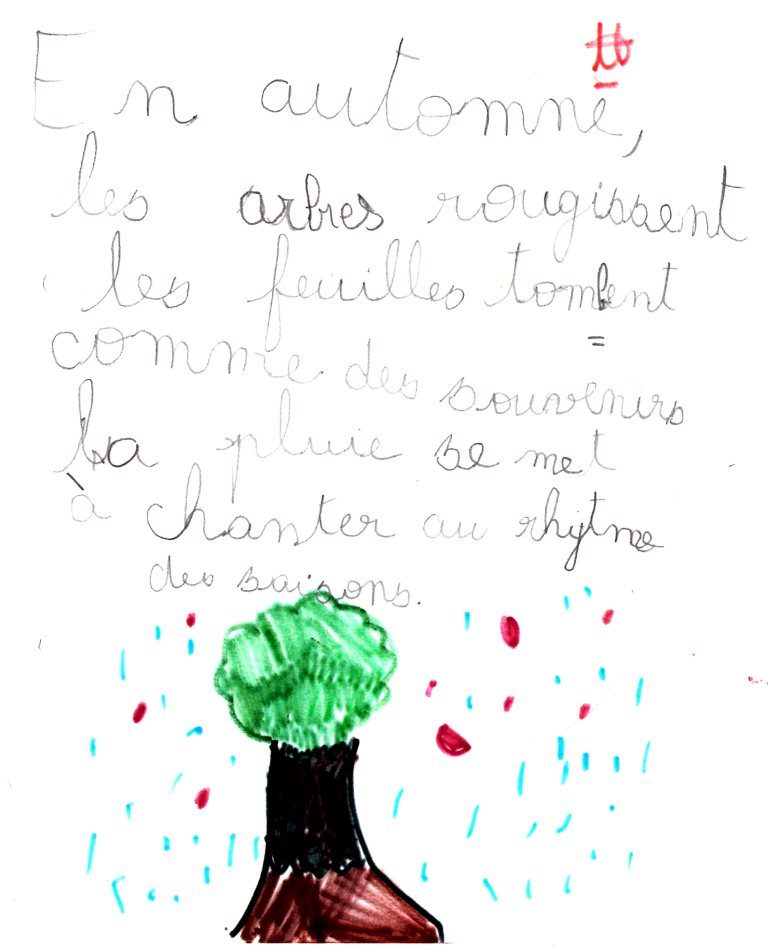 tb
En automne,
les arbres rougissent
les feuilles tombent
comme des souvenirs
La pluie se met
à chanter au rhytme
des saisons.